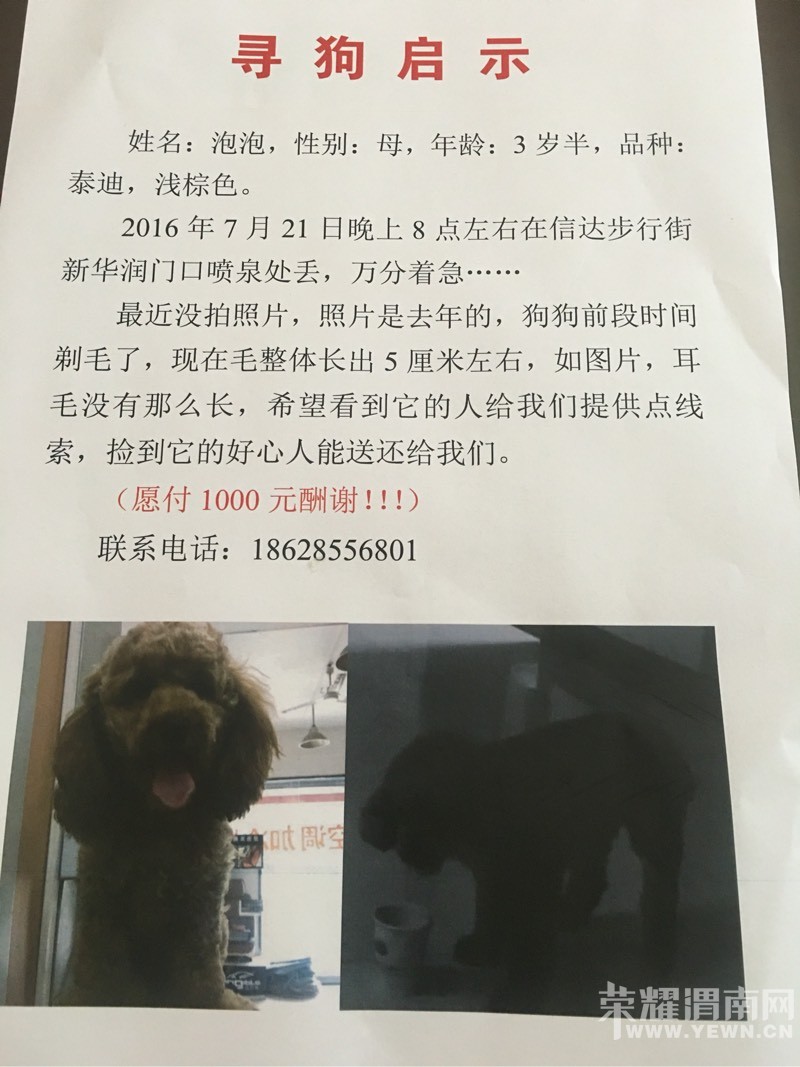 寻狗启示
姓名：泡泡，性别：母，年龄：3 岁半，品种：
泰迪，浅棕色。
2016 年 7 月 21 日晚上 8 点左右在信达步行街
新华润门口喷泉处丢，万分着急……
最近没拍照片，照片是去年的，狗狗前段时间
剃毛了，现在毛整体长出 5 厘米左右，如图片，耳
毛没有那么长，希望看到它的人给我们提供点线
索，捡到它的好心人能送还给我们。
（愿付 1000 元酬谢！！！）
联系电话：18628556801
空调加
荣耀渭南网
WWW.YEWN.CN